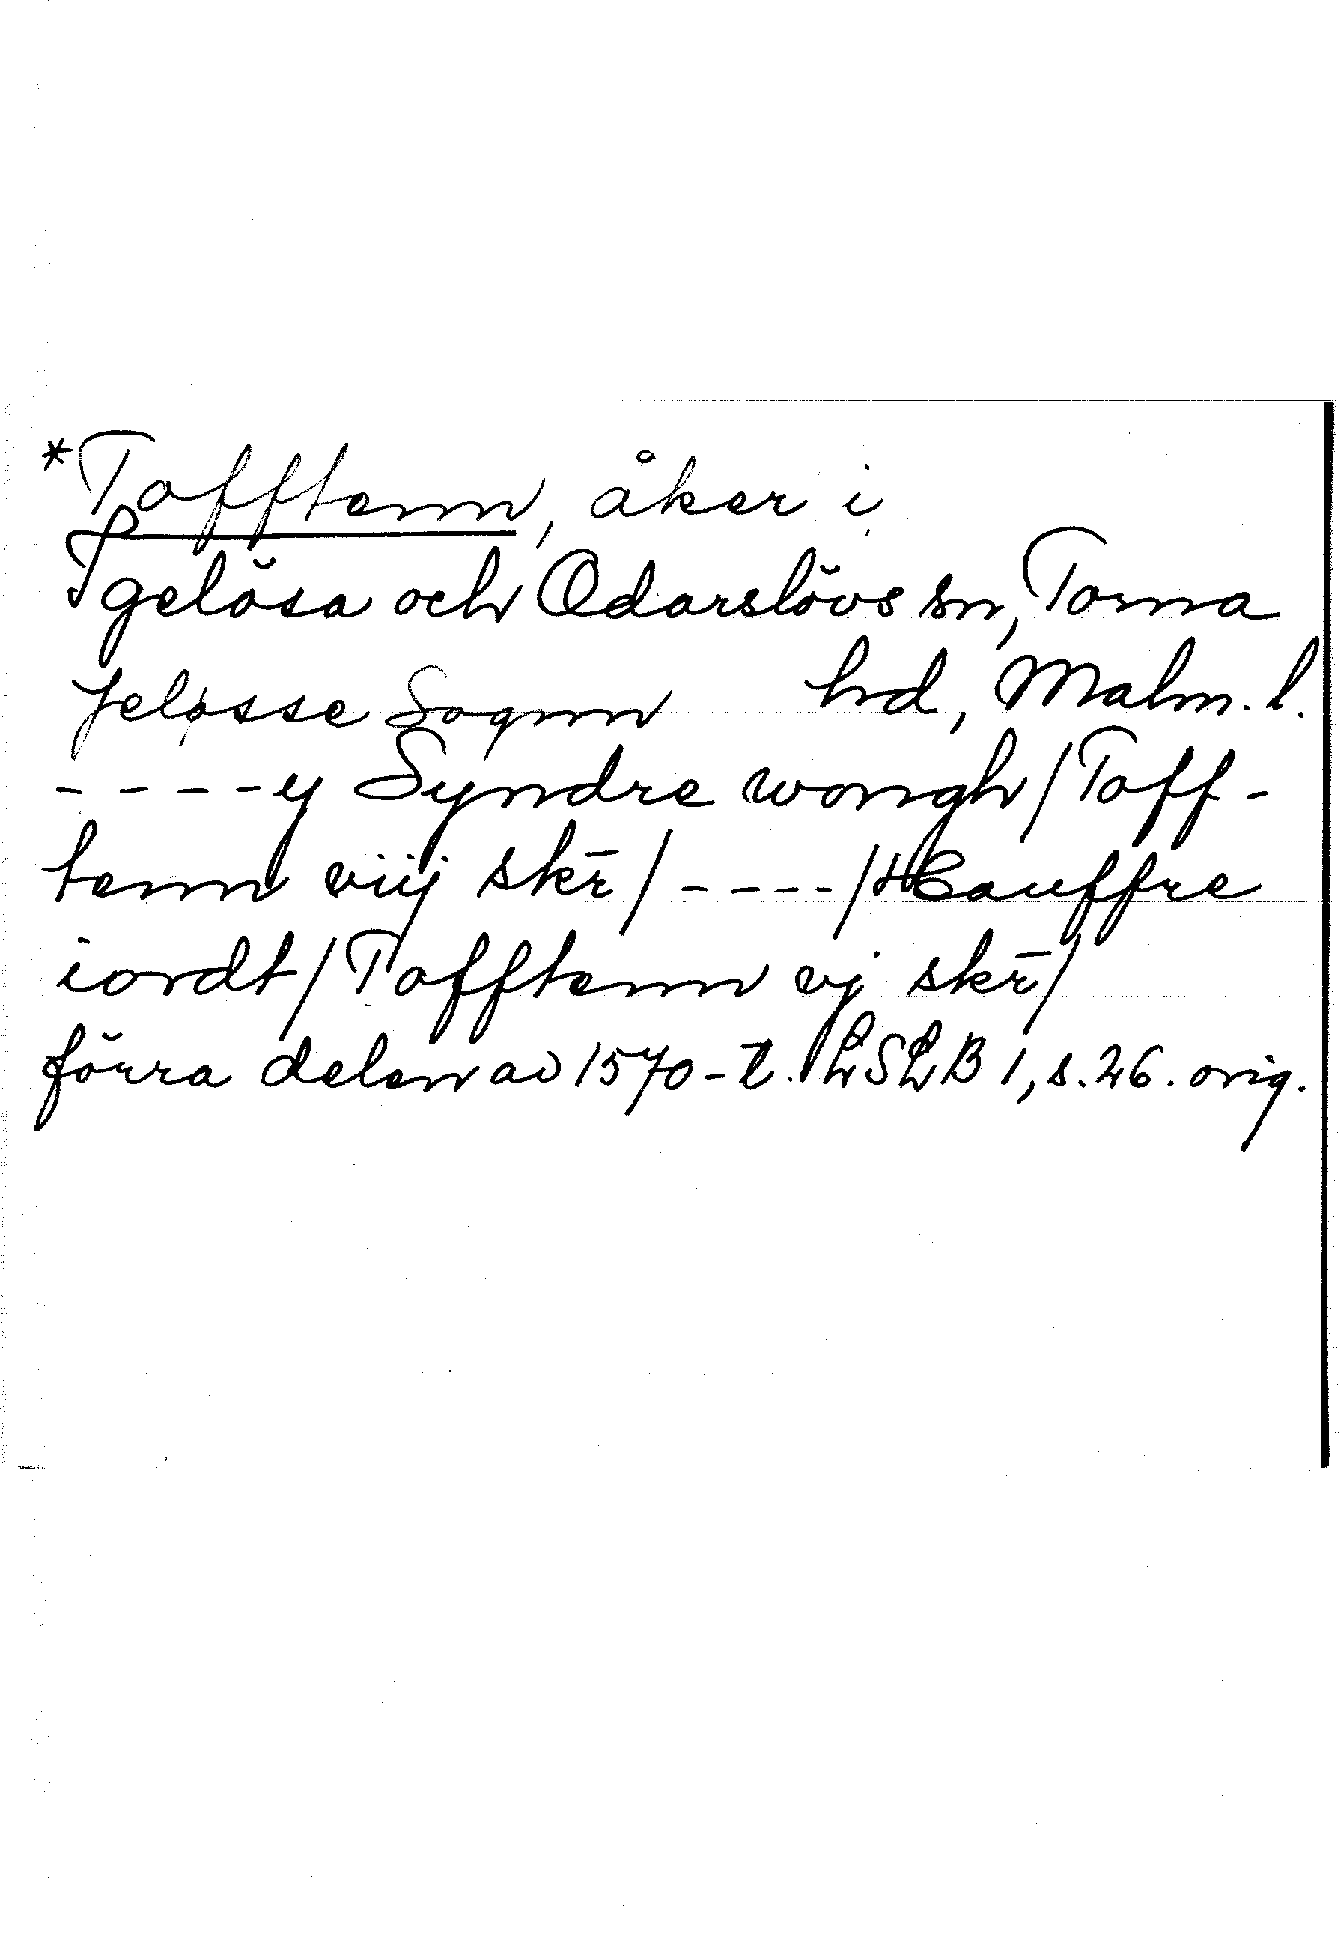 *Tofftenn, åker i
Igelösa och Odarslövs sn, Torna
Jeløsse Sognn hd, Malm. l.
- - - - y Syndre wongh / Toff-
tenn viij skr̄ / - - - - / Hauffre
iordt / Tofftenn vj skr̄ /
förra delen av 1570-t. LSLB 1, s. 26. orig.